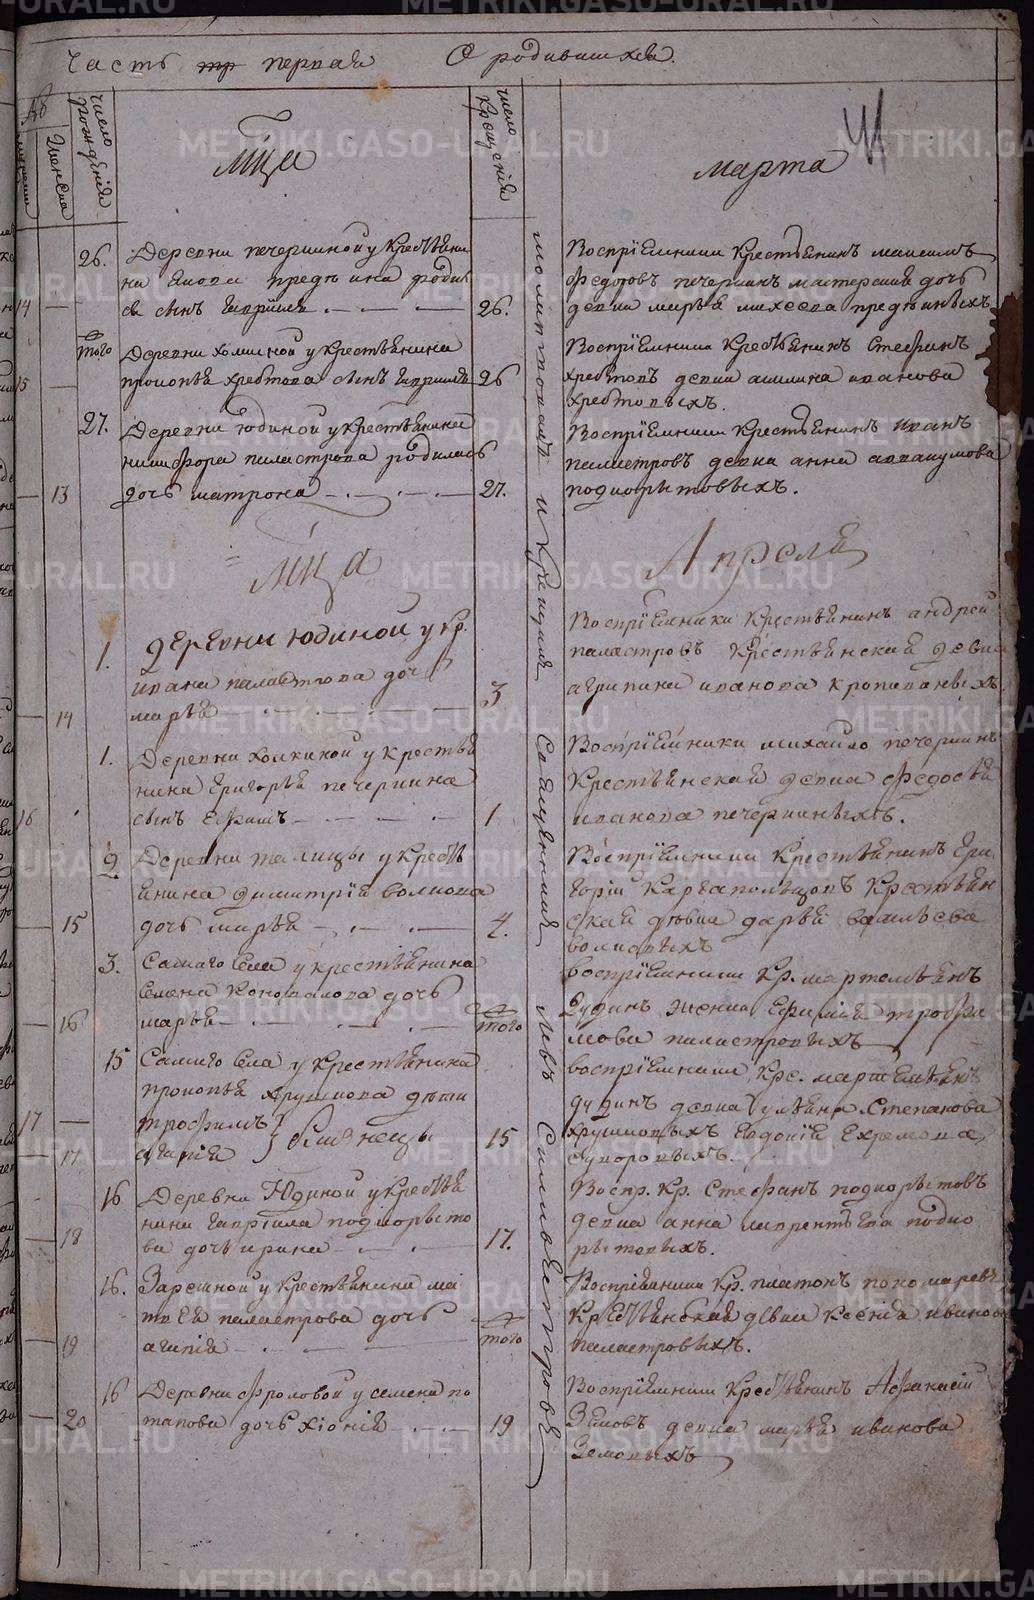 часть первая О родившихся.
число рождения
число крещения
женска
Мца марта
26. Деревни печеркиной у крестьяни
на предеина родил
ся сынъ гаврiилъ 26.
Воспрiемники крестьянинъ максимъ
федотовъ печеркинъ мастерская дочь
девка марья михеева предеиныхъ
14
того Деревни хомкиной у крестьянина
прокопья хребтова сынъ гаврiилъ 26
Воспрiемники крестьянинъ Стефанъ
хребтовъ девка акилина иванова
хребтовыхъ.
15
27. Деревни Юдиной у крестьянина
никифора пиластрова родилась
дочь матрона 27.
Воспрiемники крестьянинъ иванъ
пиластровъ девка анна аввакумова
подкорытовыхъ.
13
Мца Апреля
1. деревни юдиной у кр.
ивана паластрова дочь
марья 3
Воспрiемники крестьянинъ андрей
паластровъ крестьянская девка
агрипина иванова кропивиныхъ
14
1. Деревни хомкиной у крестья
нина григорья печеркина
сынъ ефимъ 1
Воспрiемники михайло печеркинъ
крестьянская девка федосья
иванова печеркиныхъ.
16
2 Деревни талицы у кресть
янина димитрiй волкова
дочь марья 4.
Воспрiемники крестьянинъ гри
горiй Каргапольцовъ крестьян
ская девка дарья васильева
волковыхъ
15
3. Самаго села у крестьянина
Семена Коновалова дочь
марья того
воспрiемники кр. мартемьянъ
дудинъ жонка ефимiя трофи
мова пиластровыхъ
16
15 Самаго села у крестьянина
прокопья хрушкова дети
трофимъ
агапiя } близнецы 15
воспрiемники крс. мартемьянъ
дудинъ девка ульяна Степанова
хрушковыхъ евдокiя ехремова
суворовыхъ.
17
17
16 Деревни Юдиной у крестья
нина гаврiила подкорыто
ва дочь ирина 17.
Воспр. кр. Стефанъ подкорытовъ
девка анна лаврентьева подко
рытовыхъ.
18
16. Заречной у крестьянина ма
твея паластрова дочь
агапiя того
Воспрiемники кр. платонъ пономаревъ
крестьянская девка ксенiя иванова
паластровыхъ.
19
16 Деревни фроловой у семена по
тапова дочь хiонiя 19
Воспрiемники крестьянинъ Афанасiй
Земовъ девка марья иванова
Земовыхъ
20
молитвовалъ и крещилъ священникъ левъ Сильвестровъ
METRIKI.GASO-URAL.RU